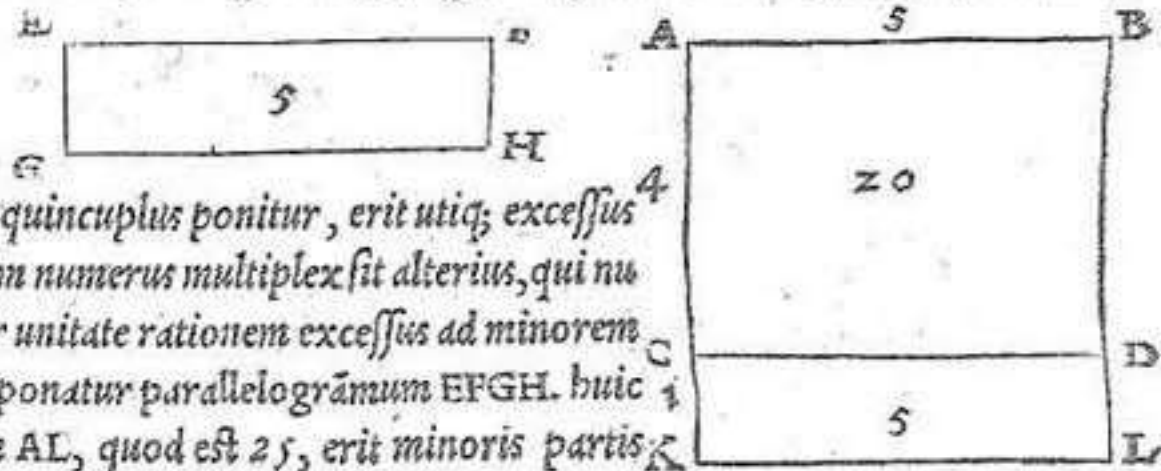 E
5
G H
A 5 B
4
20
C D
1
5
K L
quincuplus ponitur, erit utiq; excessus
numerus multiplex sit alterius, qui nu
unitate rationem excessus ad minorem
ponatur parallelogrãmum EFGH. huic
AL, quod est 25, erit minoris partis